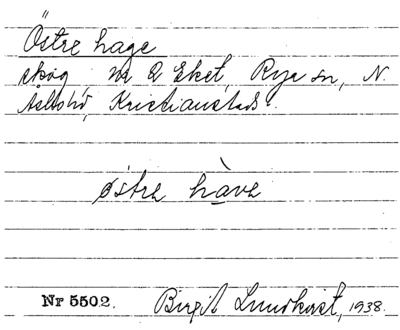 Östre hage
skog, nr 2 Eket, Rye sn, N.
Åsbo hd, Kristianstads.
östre hàva
Nr 5502. Birgit Lundkvist, 1938.